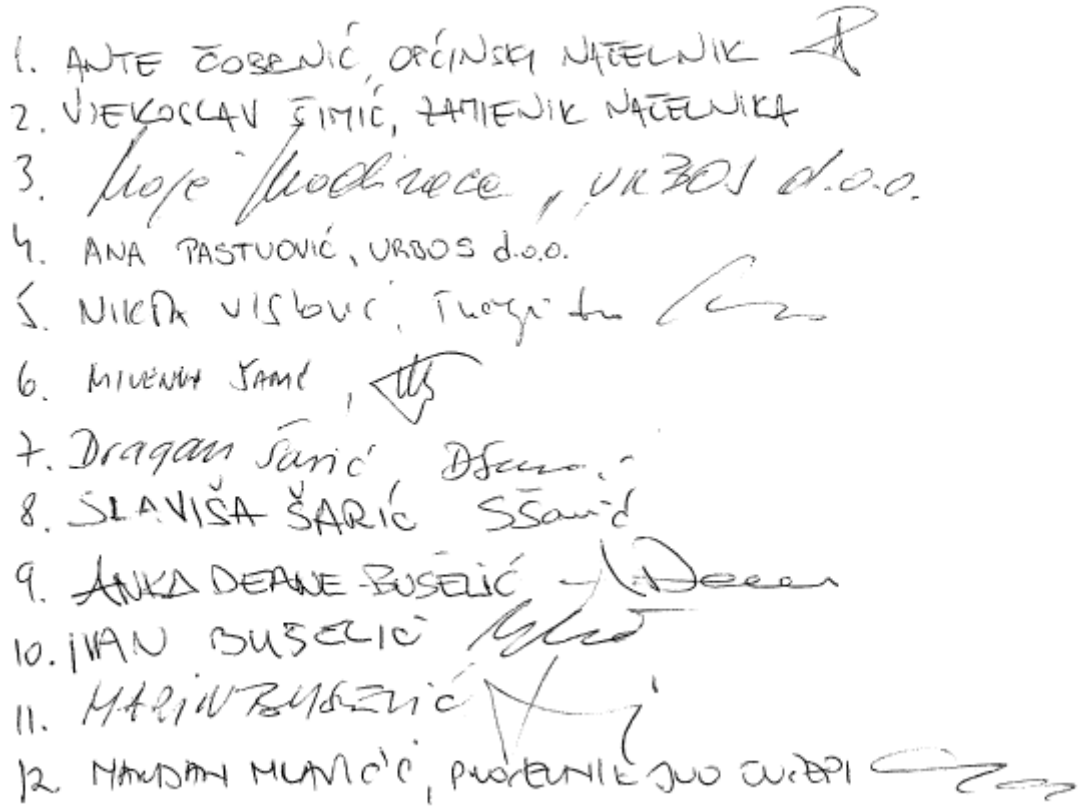 1. ANTE ČOBRNIĆ, OPĆINSKI NAČELNIK
2. VJEKOSLAV ŠIMIĆ, ZAMJENIK NAČELNIKA
3. Maja Madiraca, URBOS d.o.o.
4. ANA PASTUOVIĆ, URBOS d.o.o.
5. NIKŠA VISLOVIĆ,
6. MILENKO ŠARIĆ,
7. Dragan Šarić DŠarić
8. SLAVIŠA ŠARIĆ SŠarić
9. ANKA DEANE-BUŠELIĆ
10. IVAN BUŠELIĆ
11. MARIN BUŠELIĆ
12. MARDAN MLAVIČIĆ, PROČELNIK JUO